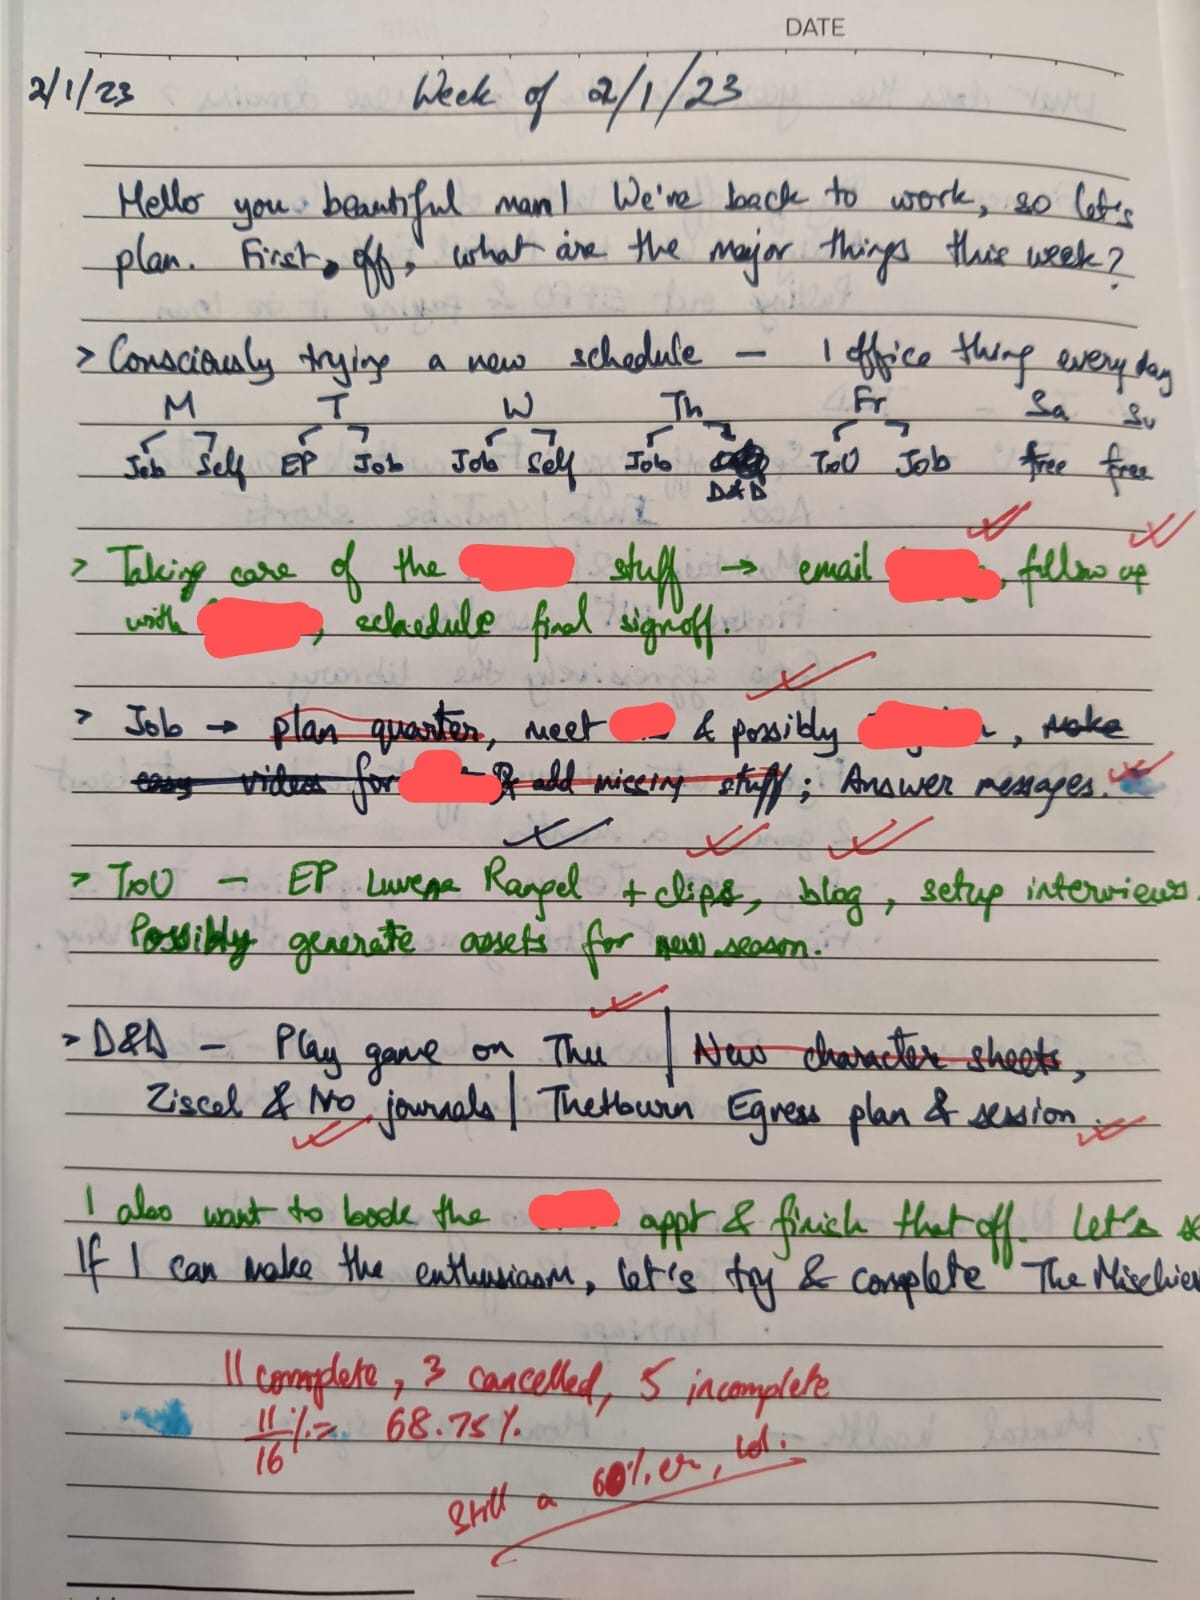 DATE
2/1/23 Week of 2/1/23
Hello you beautiful man! We're back to work, so let's
plan. First off, what are the major things this week?
> Consciously trying a new schedule — 1 office thing every day
M T W Th Fr Sa Su
Job Self EP Job Job Self Job D&D TxU Job free free
> Taking care of the stuff → email , follow up
with , schedule final signoff.
> Job → plan quarter, meet & possibly , make
easy videos for & add missing stuff; Answer messages.
> TxU — EP Luvena Rangel + clips, blog, setup interviews.
Possibly generate assets for new season.
> D&D — Play game on Thu | New character sheets,
Ziscel & No journals | Thethurn Egress plan & session.
I also want to book the appt & finish that off. Let's
If I can make the enthusiasm, let's try & complete The
11 complete, 3 cancelled, 5 incomplete
11/16 % = 68.75%.
Still a 60%er, lol.